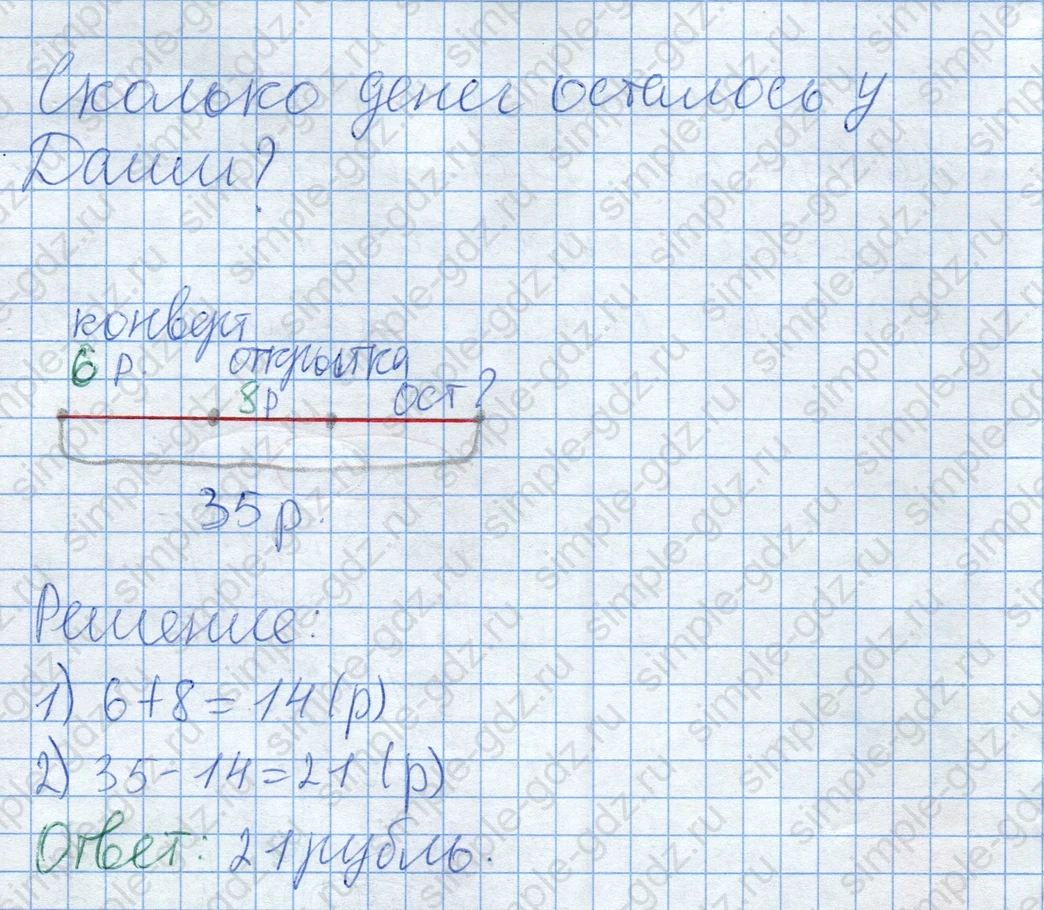 Сколько денег осталось у
Даши?
конверт
6 р. открытка
8р ост?
35 р.
Решение:
1) 6+8=14(р)
2) 35-14=21(р)
Ответ: 21 рубль.
simple-gdz.ru